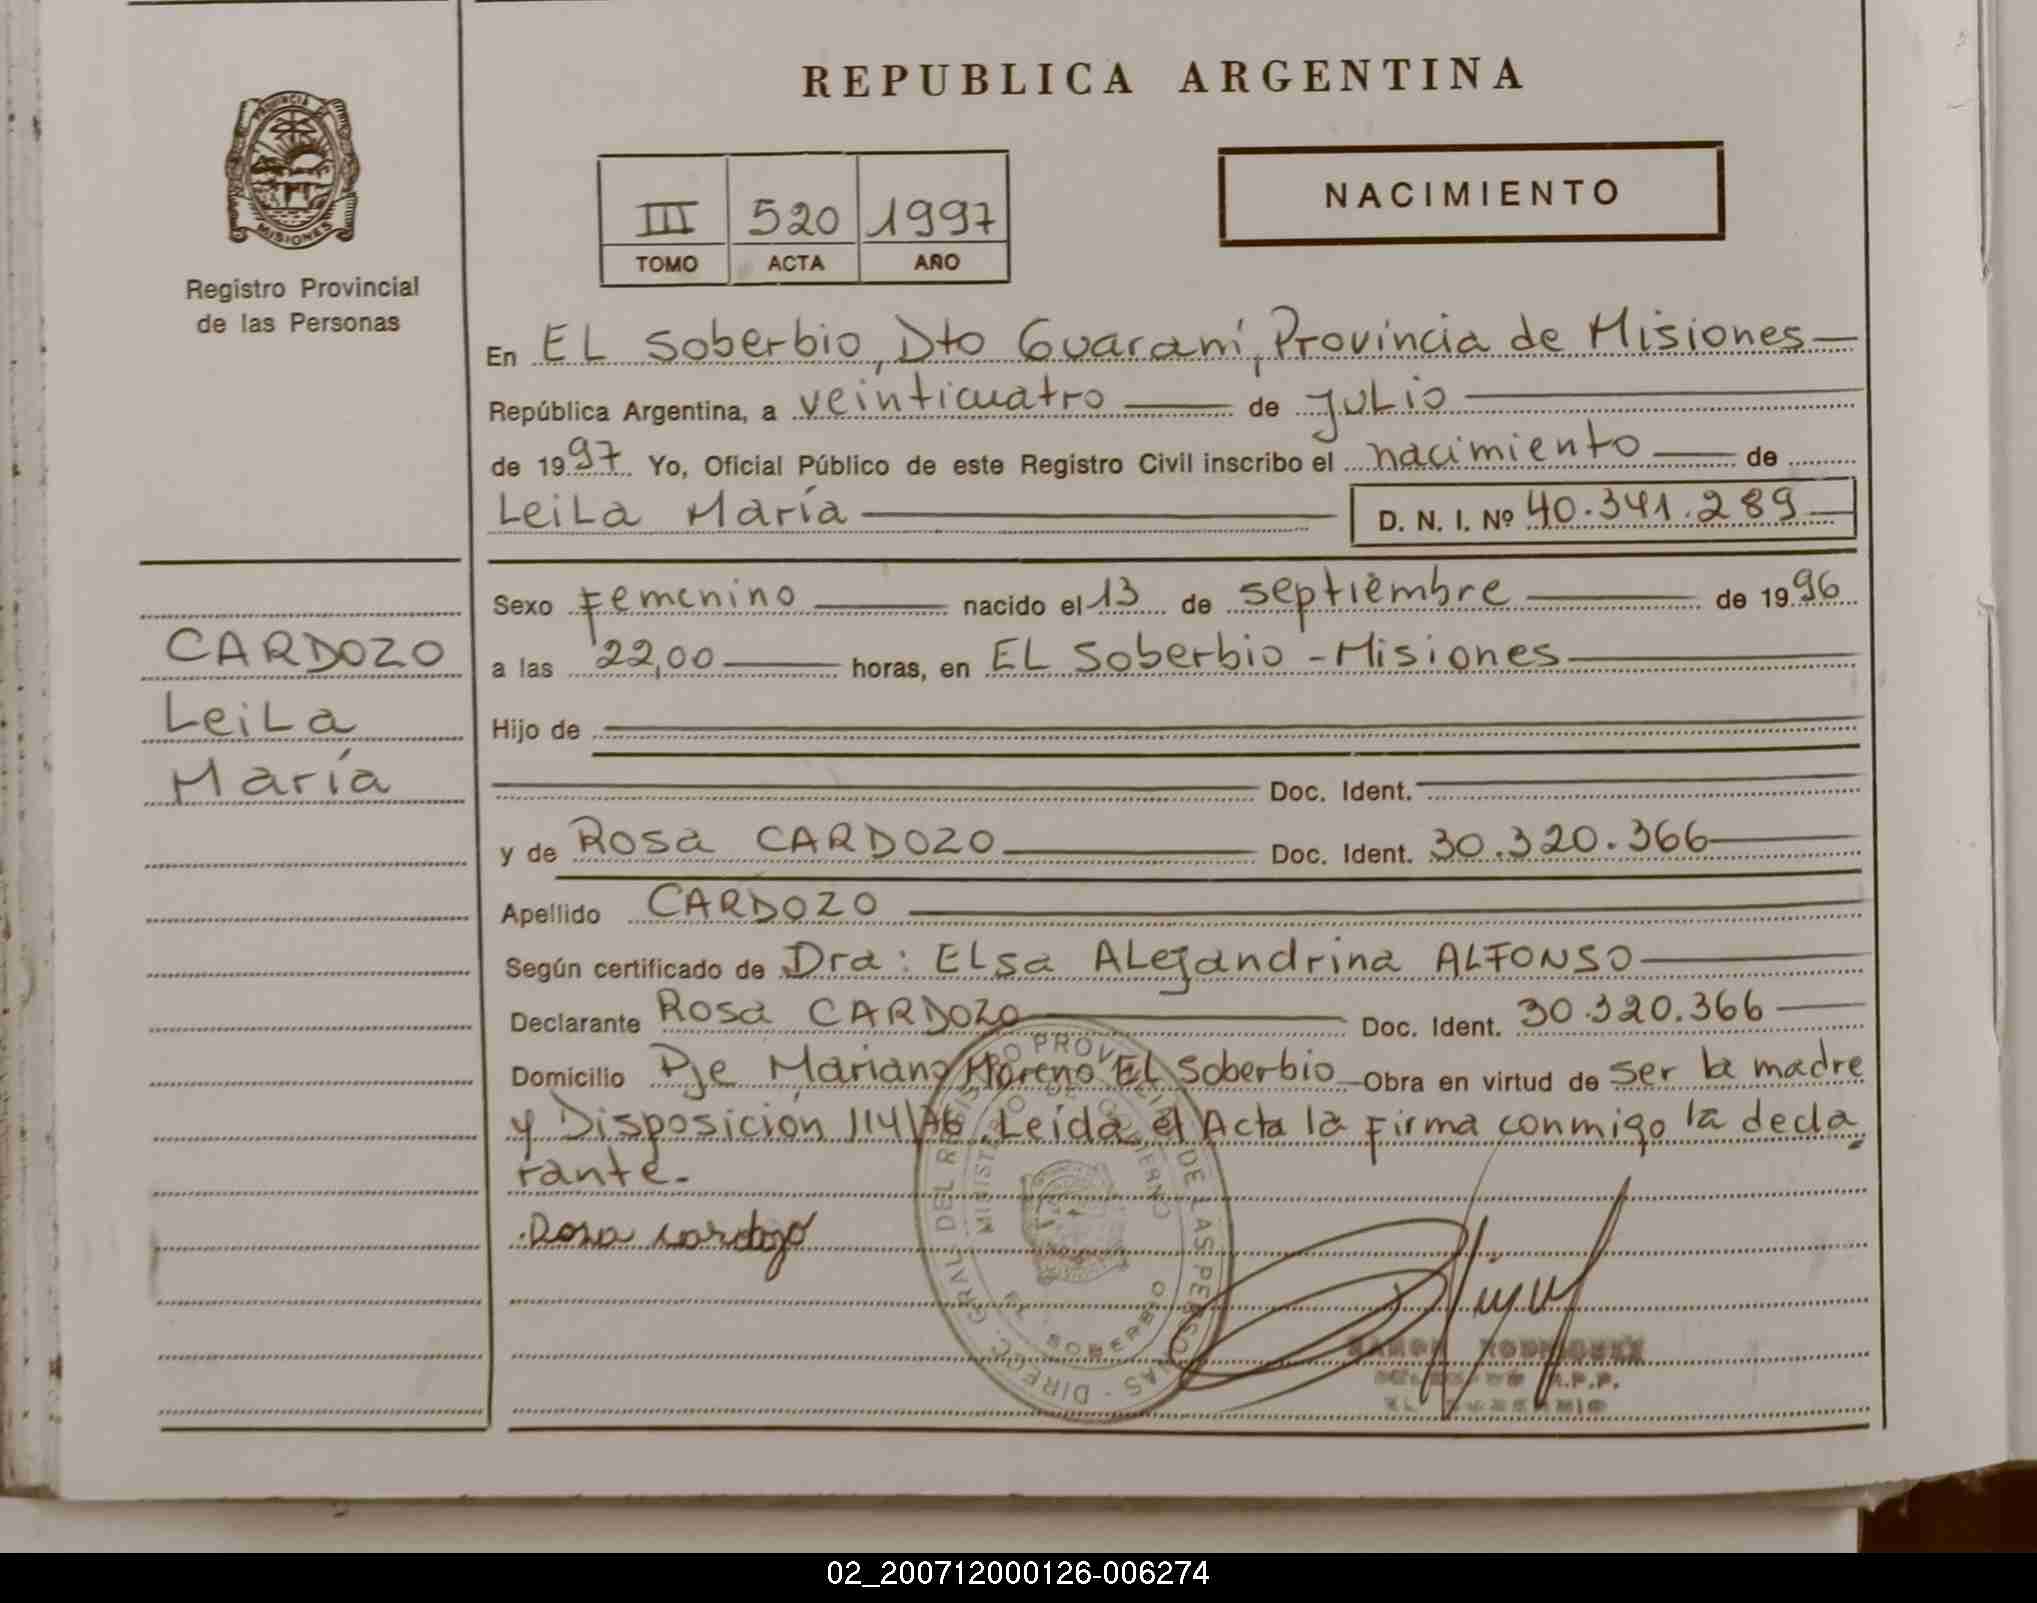 REPUBLICA ARGENTINA
PROVINCIA DE
MISIONES
Registro Provincial
de las Personas
III 520 1997
TOMO ACTA AÑO
NACIMIENTO
En EL Soberbio, Dto Guaraní, Provincia de Misiones
República Argentina, a veinticuatro de julio
de 1997 Yo, Oficial Público de este Registro Civil inscribo el nacimiento de
Leila María D. N. I. Nº 40.341.289
Sexo Femenino nacido el 13 de septiembre de 1996
a las 22,00 horas, en EL Soberbio - Misiones
Hijo de
Doc. Ident.
y de Rosa CARDOZO Doc. Ident. 30.320.366
Apellido CARDOZO
Según certificado de Dra: Elsa Alejandrina ALFONSO
Declarante Rosa CARDOZO Doc. Ident. 30.320.366
Domicilio Pje Mariano Moreno EL Soberbio Obra en virtud de ser la madre
y Disposición 114/76. Leída el Acta la firma conmigo la decla
rante.-
Rosa cardozo
CARDOZO
Leila
María
DIRECC. GRAL. DEL REGISTRO PROVINCIAL DE LAS PERSONAS
MINISTERIO DE GOBIERNO
EL SOBERBIO
RAMON RODRIGUEZ
R.P.P.
EL SOBERBIO
02_200712000126-006274